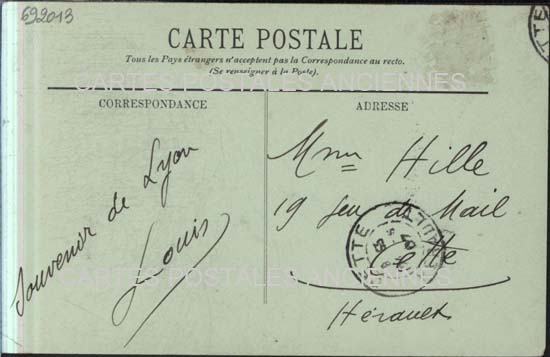 692013
CARTE POSTALE
Tous les Pays étrangers n'acceptent pas la Correspondance au recto.
(Se renseigner à la Poste).
CARTES POSTALES ANCIENNES
CORRESPONDANCE
ADRESSE
Souvenir de Lyon
Louis
Mme Hille
19 Jeu de Mail
Cette
Hérault
CARTES POSTALES ANCIENNES
CETTE